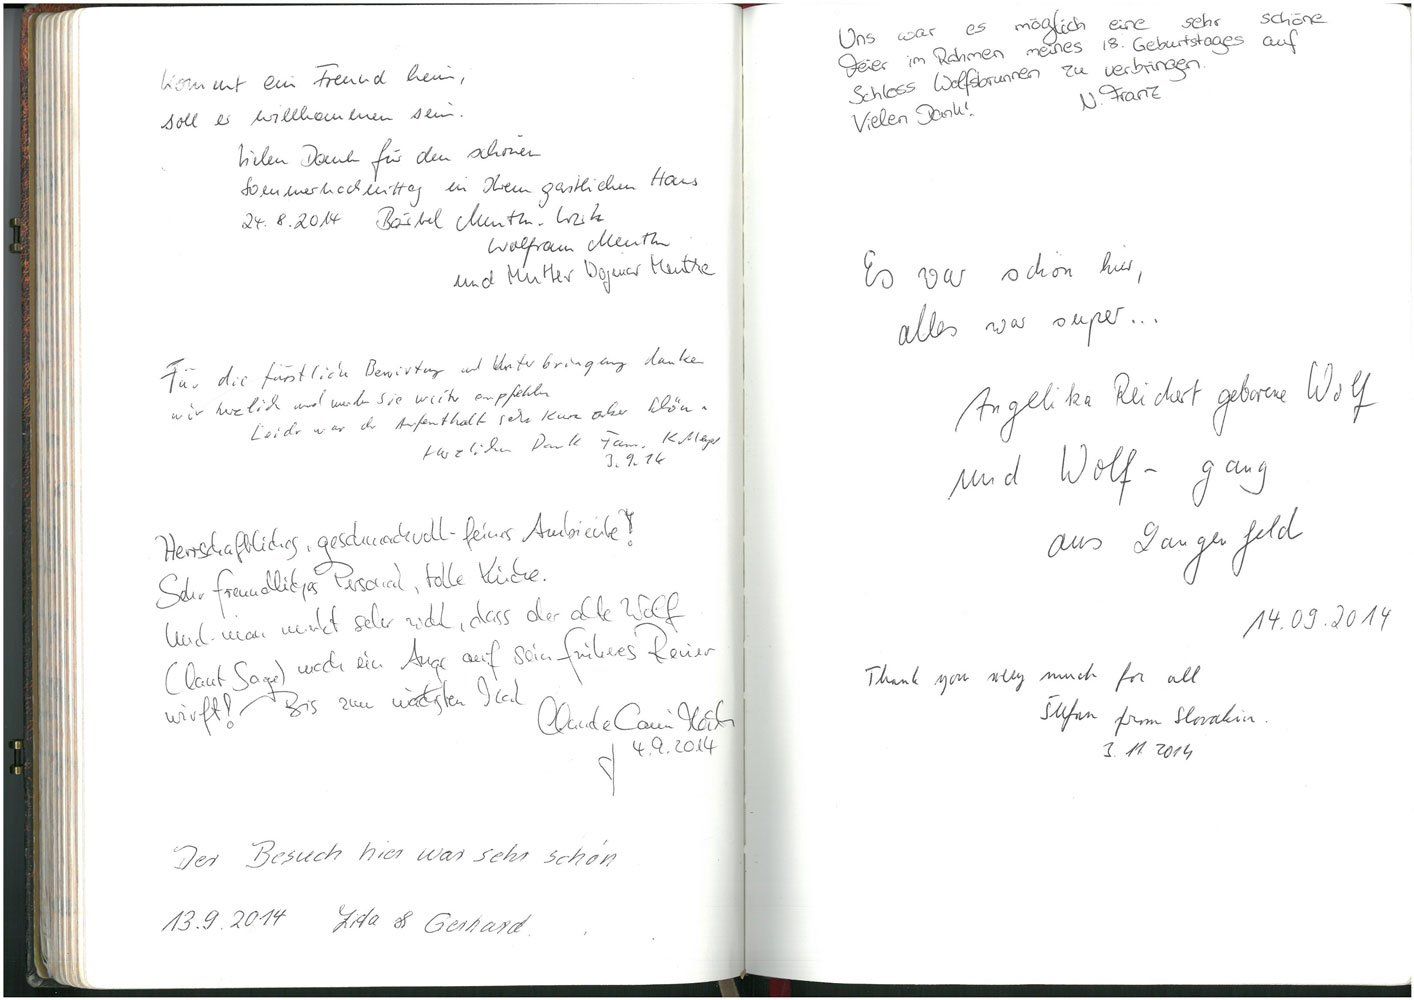 Kommt ein Freund herein,
soll er willkommen sein.
Vielen Dank für den schönen
Sommernachmittag in Ihrem gastlichen Haus
24.8.2014 Bärbel
Wolfram
und Mutter Dagmar
Für die fürstliche Bewirtung und Unterbringung danken
wir herzlich und werden sie weiter empfehlen
Leider war der Aufenthalt sehr kurz aber schön.
Herzlichen Dank Fam. K. Mayer
3.9.14
Herrschaftliches, geschmackvoll-feines Ambiente!
Sehr freundliches Personal, tolle Küche.
Und man merkt sehr wohl, dass der alte Wolf
(laut Sage) noch ein Auge auf sein früheres Revier
wirft! Bis zum nächsten Mal
4.9.2014
Der Besuch hier war sehr schön
13.9.2014 & Gerhard
Uns war es möglich eine sehr schöne
Feier im Rahmen meines 18. Geburtstages auf
Schloss Wolfsbrunnen zu verbringen.
Vielen Dank! N. Franz
Es war schön hier,
alles war super...
Angelika Reichert geborene Wolf
und Wolf- gang
aus Langenfeld
14.09.2014
Thank you very much for all
Štefan from Slovakia.
3.11.2014